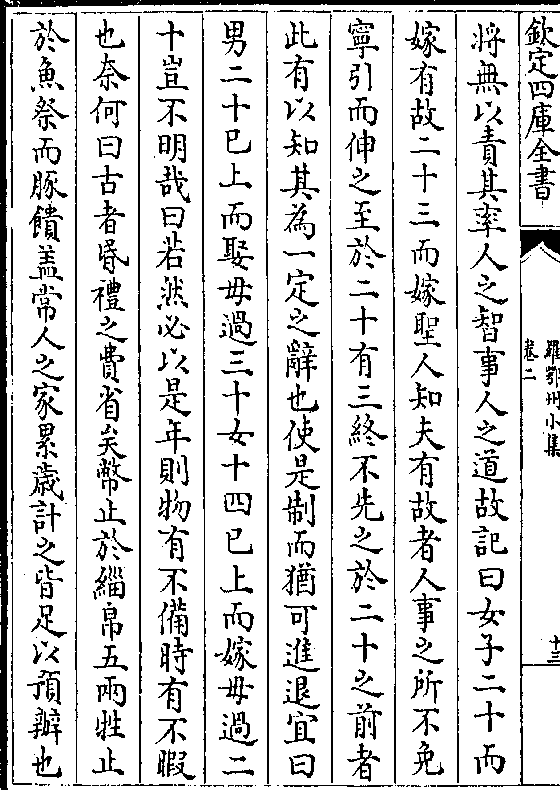 欽定四庫全書
羅鄂州小集
卷二
十三
將無以責其率人之智事人之道故記曰女子二十而
嫁有故二十三而嫁聖人知夫有故者人事之所不免
寧引而伸之至於二十有三終不先之於二十之前者
此有以知其為一定之辭也使是制而猶可進退宜曰
男二十已上而娶毋過三十女十四已上而嫁毋過二
十豈不明哉曰若然必以是年則物有不備時有不暇
也奈何曰古者昏禮之費省矣幣止於緇帛五兩牲止
於魚祭而豚饋蓋常人之家累歲計之皆足以預辦也